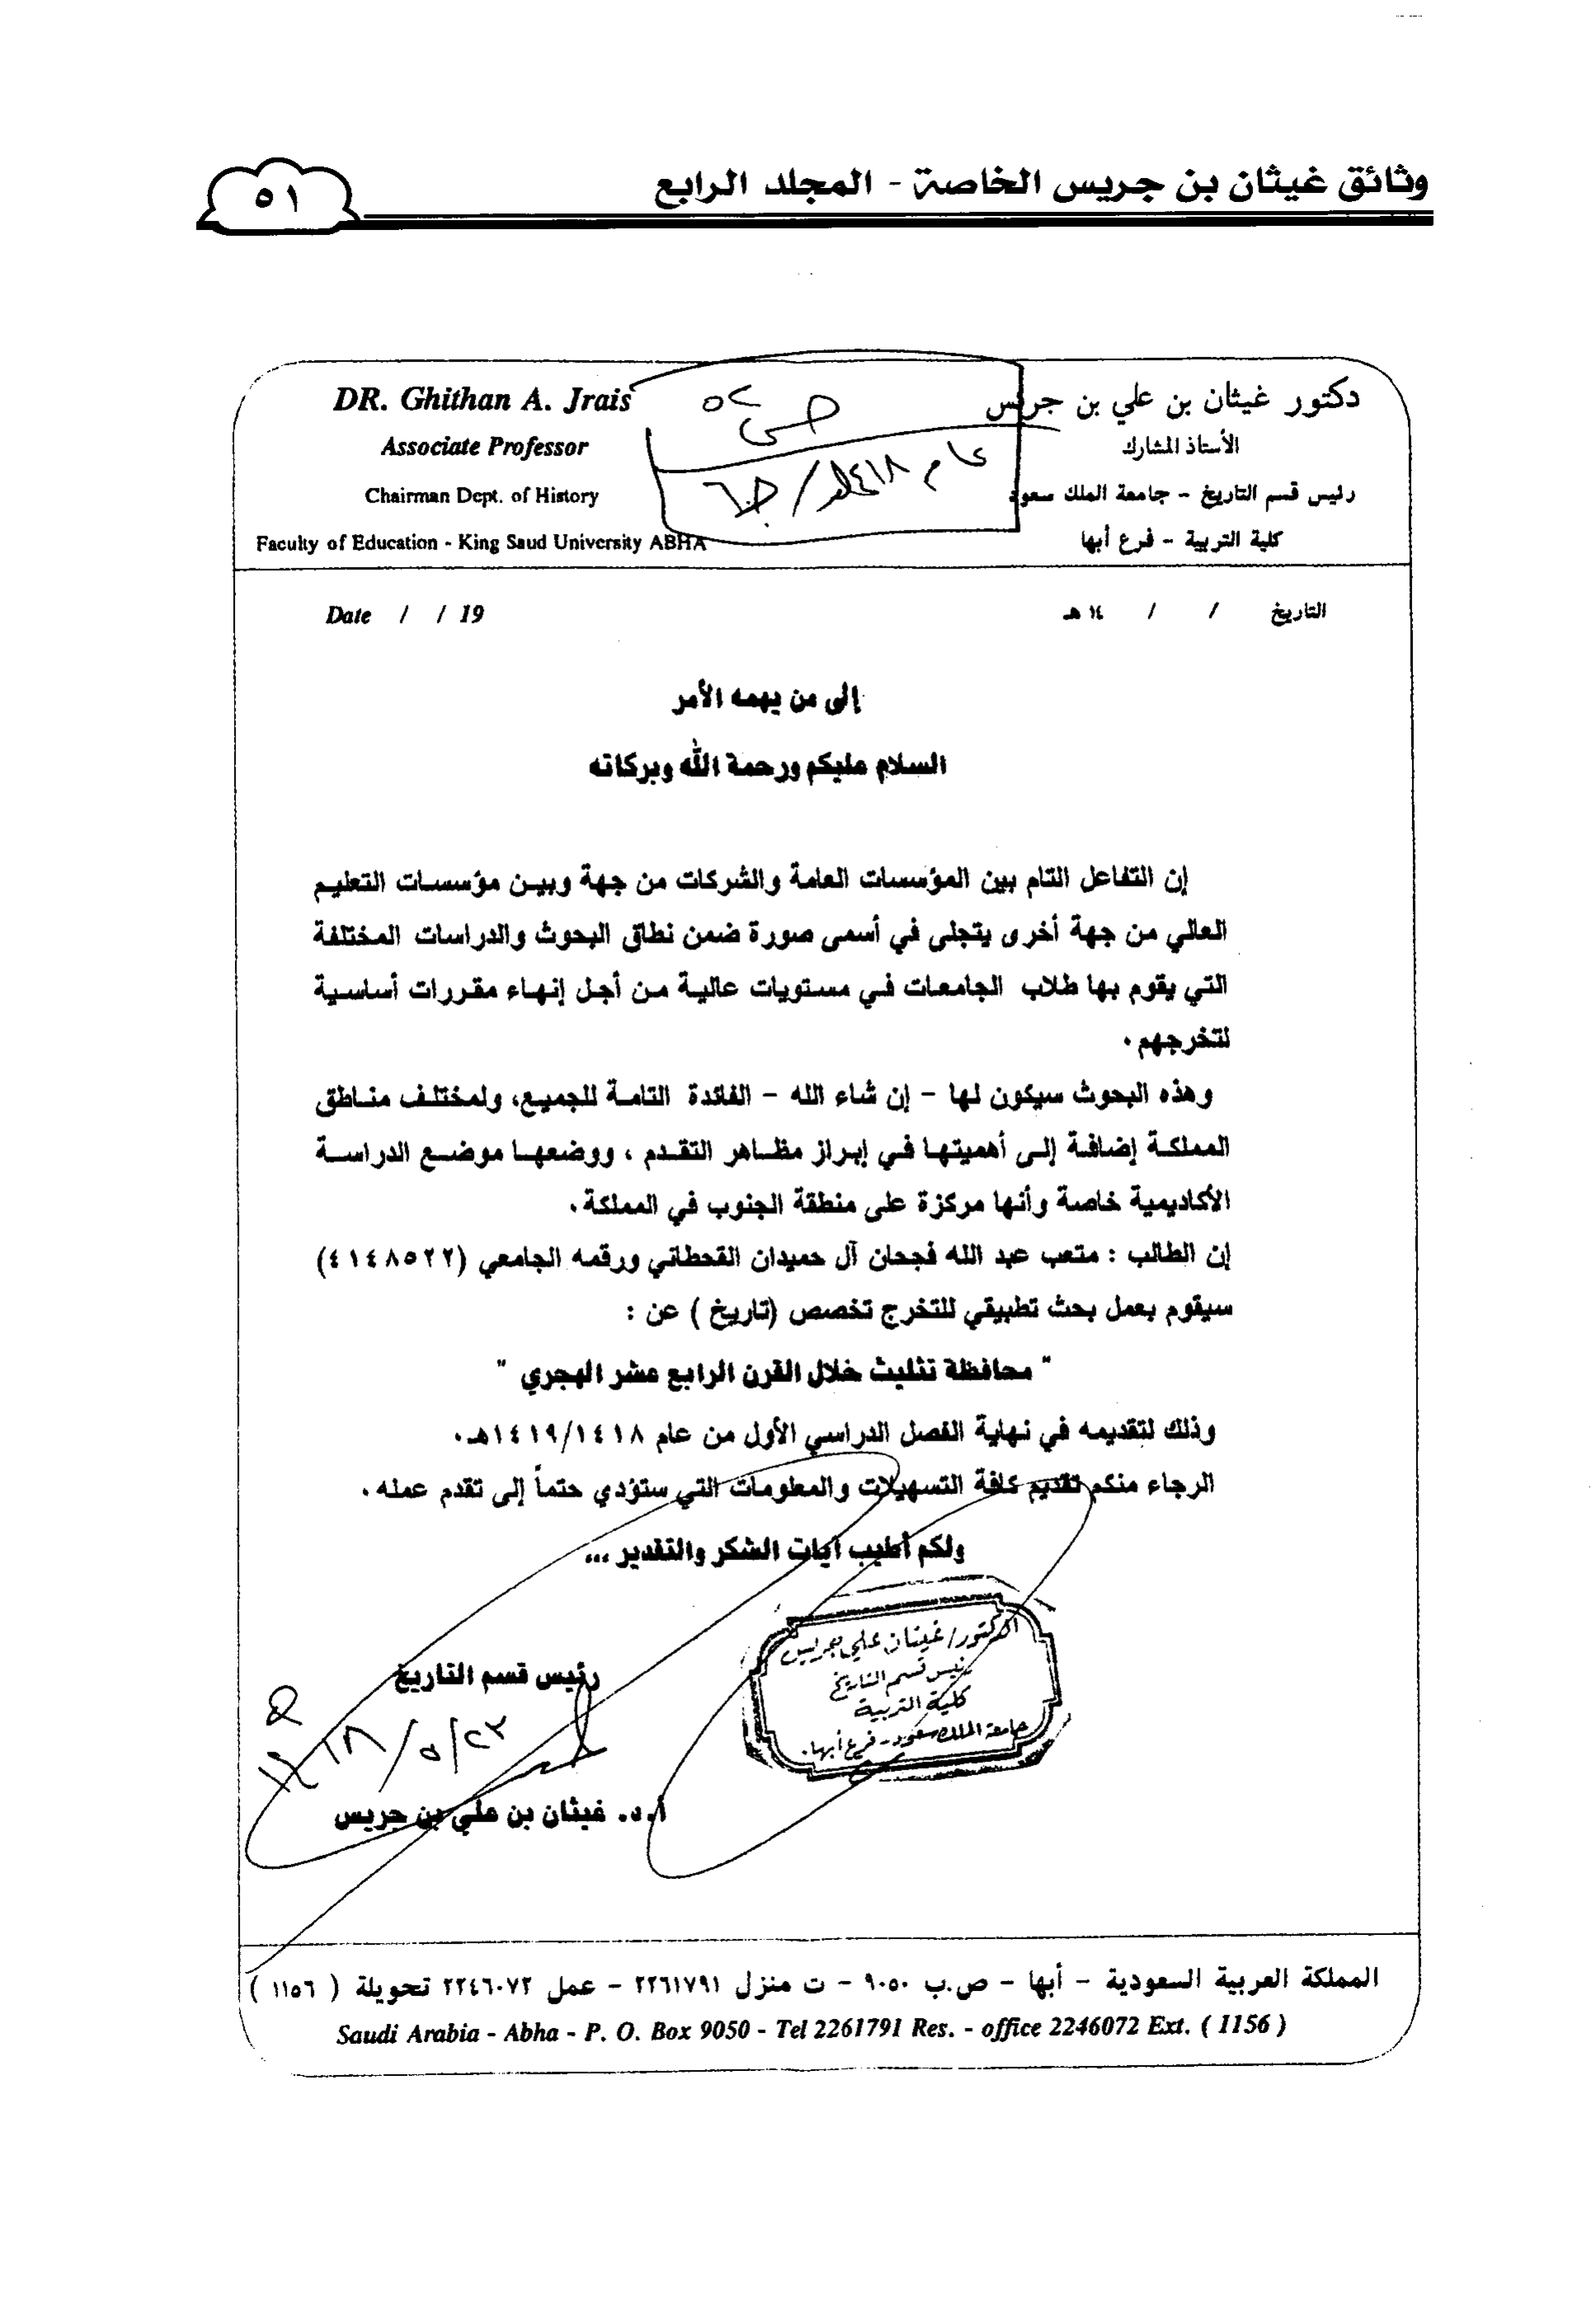 وثائق غيثان بن جريس الخاصة - المجلد الرابع
٥١
DR. Ghithan A. Jrais
Associate Professor
Chairman Dept. of History
Faculty of Education - King Saud University ABHA
دكتور غيثان بن علي بن جريس
الأستاذ المشارك
رئيس قسم التاريخ - جامعة الملك سعود
كلية التربية - فرع أبها
عام ١٤١٨هـ
Date / / 19
التاريخ / / ١٤ هـ
إلى من يهمه الأمر
السلام عليكم ورحمة الله وبركاته
إن التفاعل التام بين المؤسسات العامة والشركات من جهة وبين مؤسسات التعليم
العالي من جهة أخرى يتجلى في أسمى صورة ضمن نطاق البحوث والدراسات المختلفة
التي يقوم بها طلاب الجامعات في مستويات عالية من أجل إنهاء مقررات أساسية
لتخرجهم .
وهذه البحوث سيكون لها - إن شاء الله - الفائدة التامة للجميع، ولمختلف مناطق
المملكة إضافة إلى أهميتها في إبراز مظاهر التقدم ، ووضعها موضع الدراسة
الأكاديمية خاصة وأنها مركزة على منطقة الجنوب في المملكة .
إن الطالب : متعب عبد الله فجحان آل حميدان القحطاني ورقمه الجامعي (٤١٤٨٥٢٢)
سيقوم بعمل بحث تطبيقي للتخرج تخصص (تاريخ ) عن :
" محافظة تثليث خلال القرن الرابع عشر الهجري "
وذلك لتقديمه في نهاية الفصل الدراسي الأول من عام ١٤١٩/١٤١٨هـ .
الرجاء منكم تقديم كافة التسهيلات والمعلومات التي ستؤدي حتماً إلى تقدم عمله .
ولكم أطيب آيات الشكر والتقدير ...
الدكتور/ غيثان علي جريس
رئيس قسم التاريخ
كلية التربية
جامعة الملك سعود - فرع أبها.
رئيس قسم التاريخ
٢٣/٥/١٤١٨هـ
أ.د. غيثان بن علي بن جريس
المملكة العربية السعودية - أبها - ص.ب ٩٠٥٠ - ت منزل ٢٢٦١٧٩١ - عمل ٢٢٤٦٠٧٢ تحويلة ( ١١٥٦ )
Saudi Arabia - Abha - P. O. Box 9050 - Tel 2261791 Res. - office 2246072 Ext. ( 1156 )